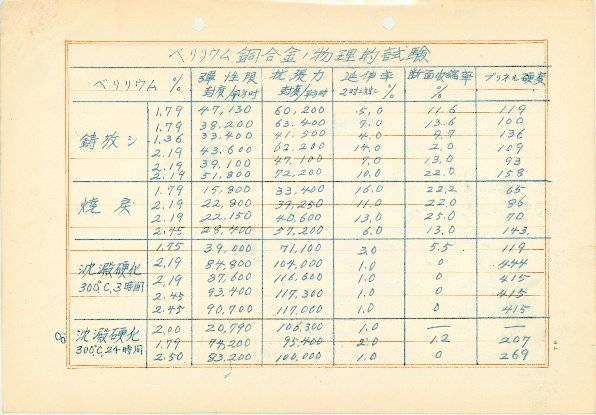 ベリリウム銅合金ノ物理的試験
ベリリウム % 弾性限 封度/平方吋 抗張力 封度/平方吋 延伸率 2吋ニ対シ % 断面収縮率 % ブリネル硬度
鋳放シ
1.79 47,130 60,200 5.0 11.6 119
1.79 38,200 63,400 9.0 13.6 100
1.36 33,400 41,500 4.0 9.7 136
2.19 43,600 62,200 14.0 2.0 109
2.19 39,100 47,100 7.0 13.0 93
2.19 51,800 72,200 10.0 22.0 158
焼戻
1.79 15,800 33,400 16.0 22.2 65
2.19 22,800 39,250 11.0 22.0 86
2.19 22,150 40,600 13.0 25.0 70
2.45 28,400 57,200 6.0 13.0 143
沈澱硬化
300°C, 3時間
1.75 39,000 71,100 3.0 5.5 119
2.19 84,800 104,000 1.0 0 444
2.19 87,600 116,600 1.0 0 415
2.45 93,400 117,300 1.0 0 415
2.45 90,700 117,000 1.0 0 415
沈澱硬化
300°C, 24時間
2.00 20,790 106,300 1.0 — —
1.79 74,200 95,400 2.0 1.2 207
2.50 83,200 100,000 1.0 0 269